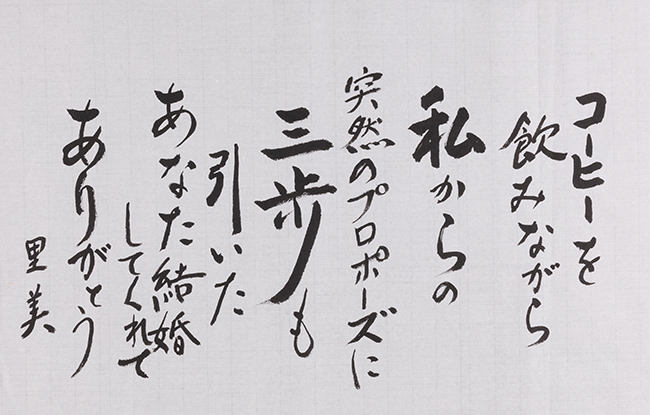 コーヒーを
飲みながら
私からの
突然のプロポーズに
三歩も
引いた
あなた結婚
してくれて
ありがとう
里美